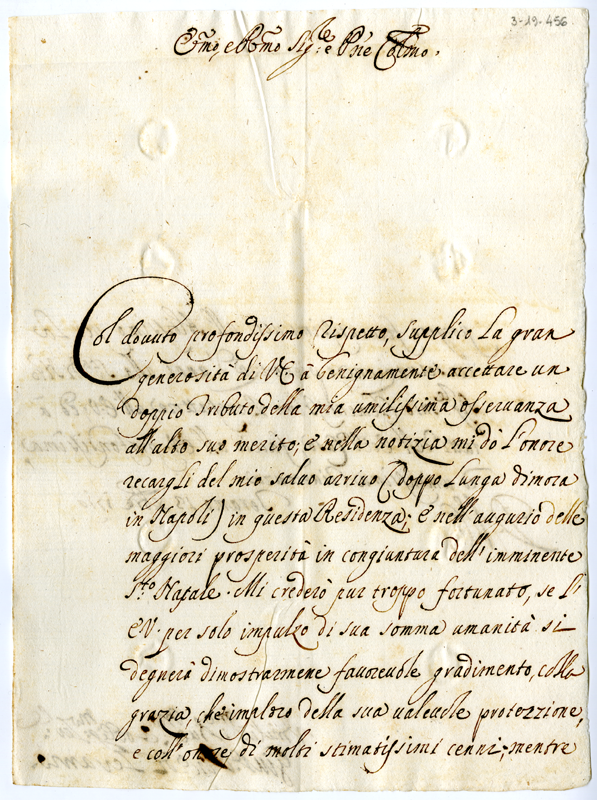 3-19-456
Emo, e Rmo Sig:re e Pne Colmo.
Col douuto profondissimo rispetto, supplico la gran
generosità di VE à benignamente accettare un
doppio tributo della mia umilissima osseruanza
all'alto suo merito; e nella notizia mi dò l'onore
recargli del mio saluo arriuo (doppo lunga dimora
in Napoli) in questa Residenza; e nell'augurio delle
maggiori prosperità in congiuntura dell'imminente
S.to Natale. Mi crederò pur troppo fortunato, se l'
EV. per solo impulzo di sua somma umanità si
degnerà dimostrarmene fauoreuole gradimento, colla
grazia, che imploro della sua valeuole protezzione,
e coll'onore di molti stimatissimi cenni; mentre